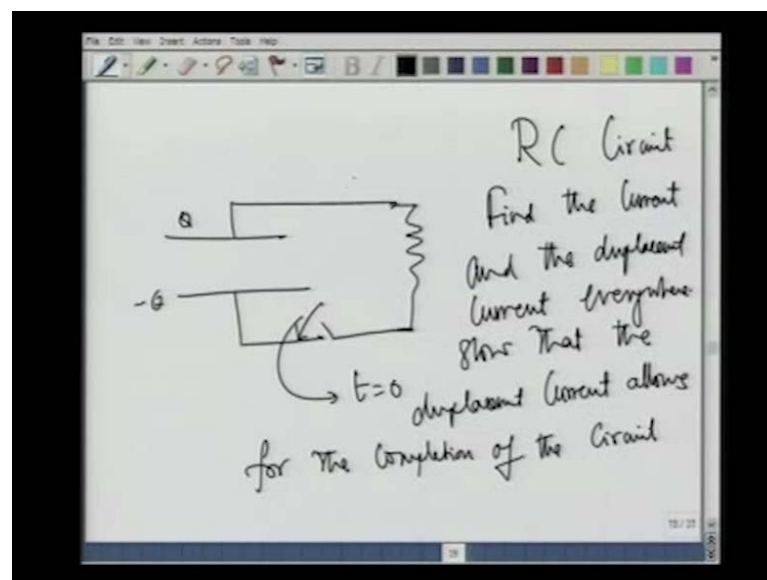 File Edit View Insert Actions Tools Help
B I
RC Circuit
Find the Current
Q
and the displacement
Current everywhere
-Q
Show that the
t=0
displacement Current allows
for the Completion of the Circuit
19/21